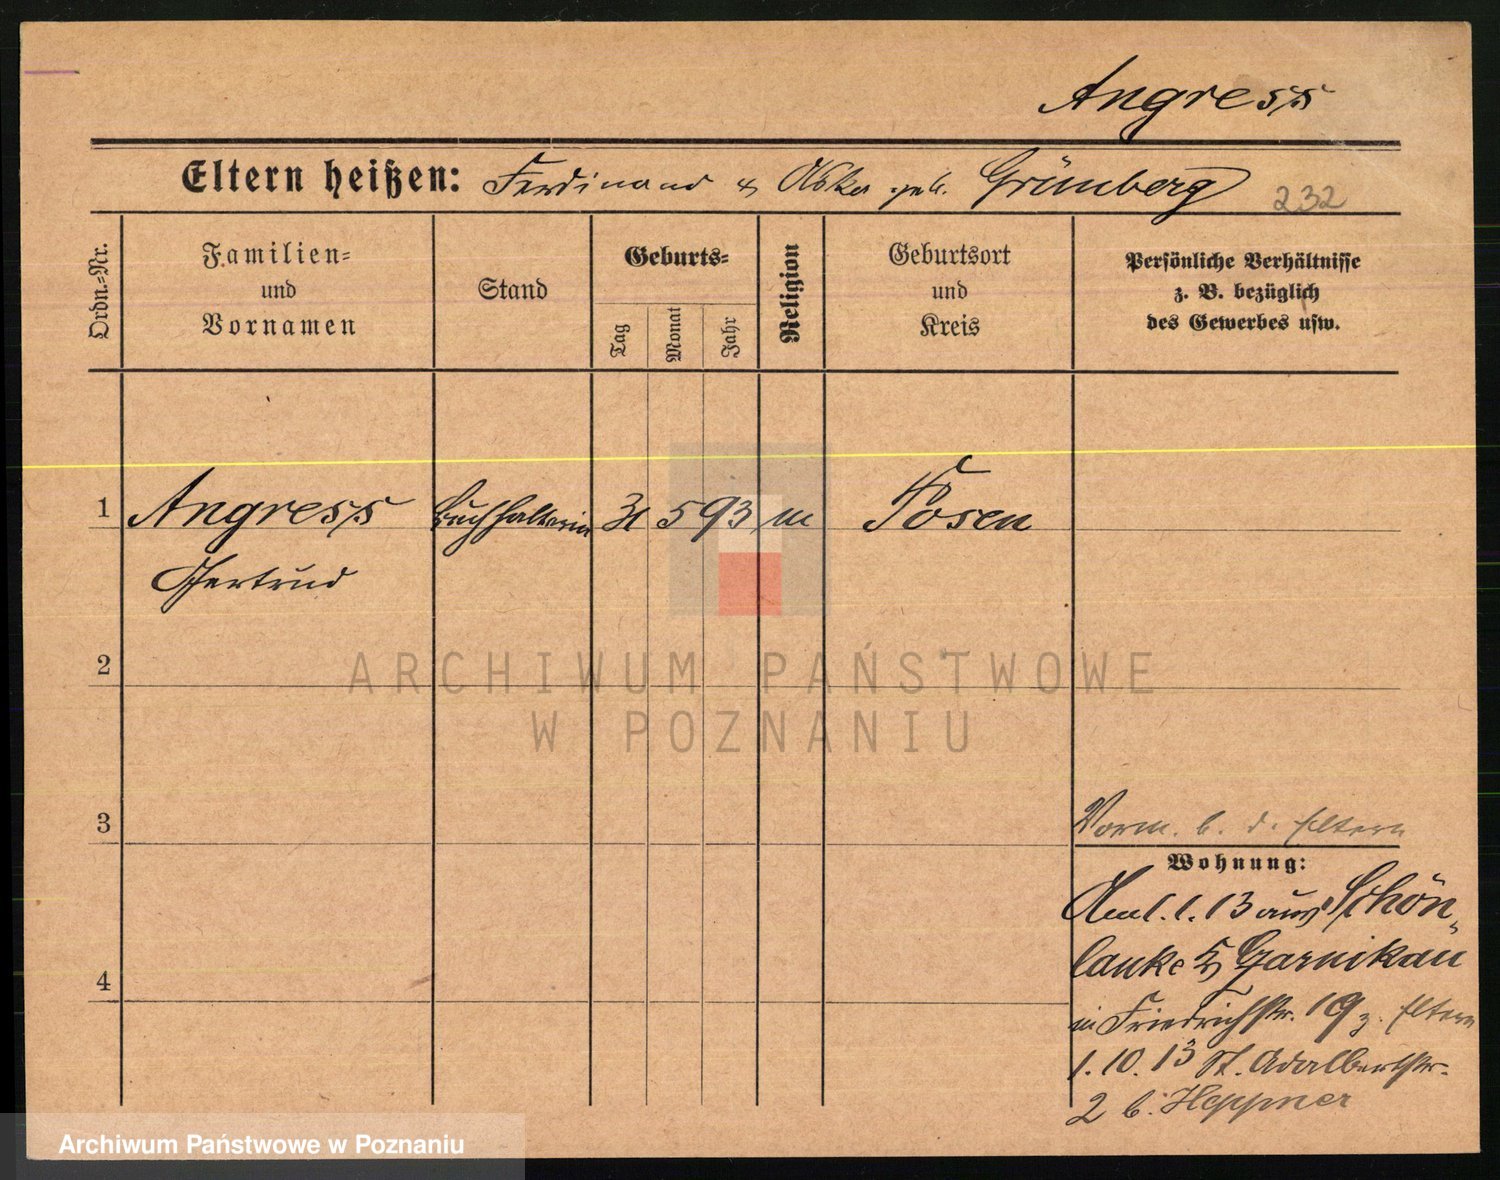 Angress
Eltern heißen: Ferdinand & geb. Grünberg 232
Ordn.-Nr.
Familien- und Vornamen
Stand
Geburts-
Tag
Monat
Jahr
Religion
Geburtsort und Kreis
Persönliche Verhältnisse
z. B. bezüglich
des Gewerbes usw.
1 Angress Buchhalterin 31 5 93 m Posen
Gertrud
2
ARCHIWUM PAŃSTWOWE
W POZNANIU
3
Vorm. b. d. Eltern
Wohnung:
Am 1.1.13 aus Schön-
lanke Czarnikau
in Friedrichstr. 19 z. Eltern
4
1.10.13 St. Adalbertstr.
2 b. Heppner
Archiwum Państwowe w Poznaniu